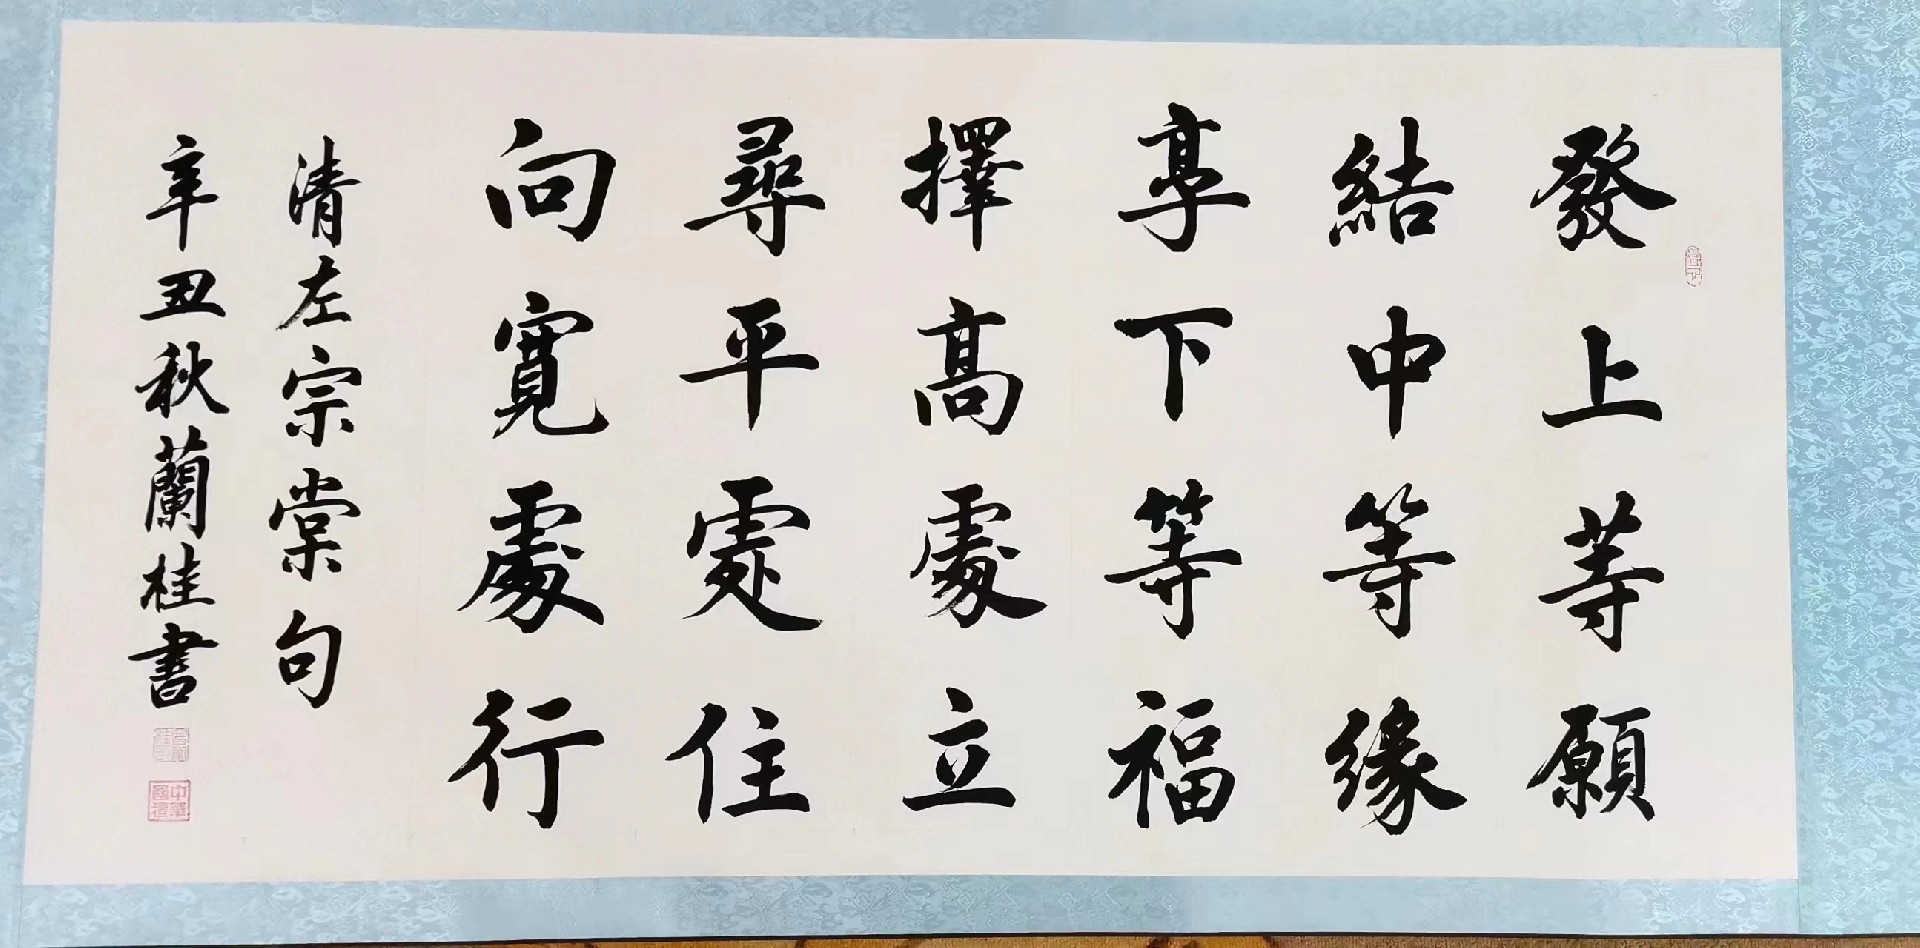 發上等願
結中等緣
享下等福
擇高處立
尋平處住
向寬處行
清左宗棠句
辛丑秋蘭桂書